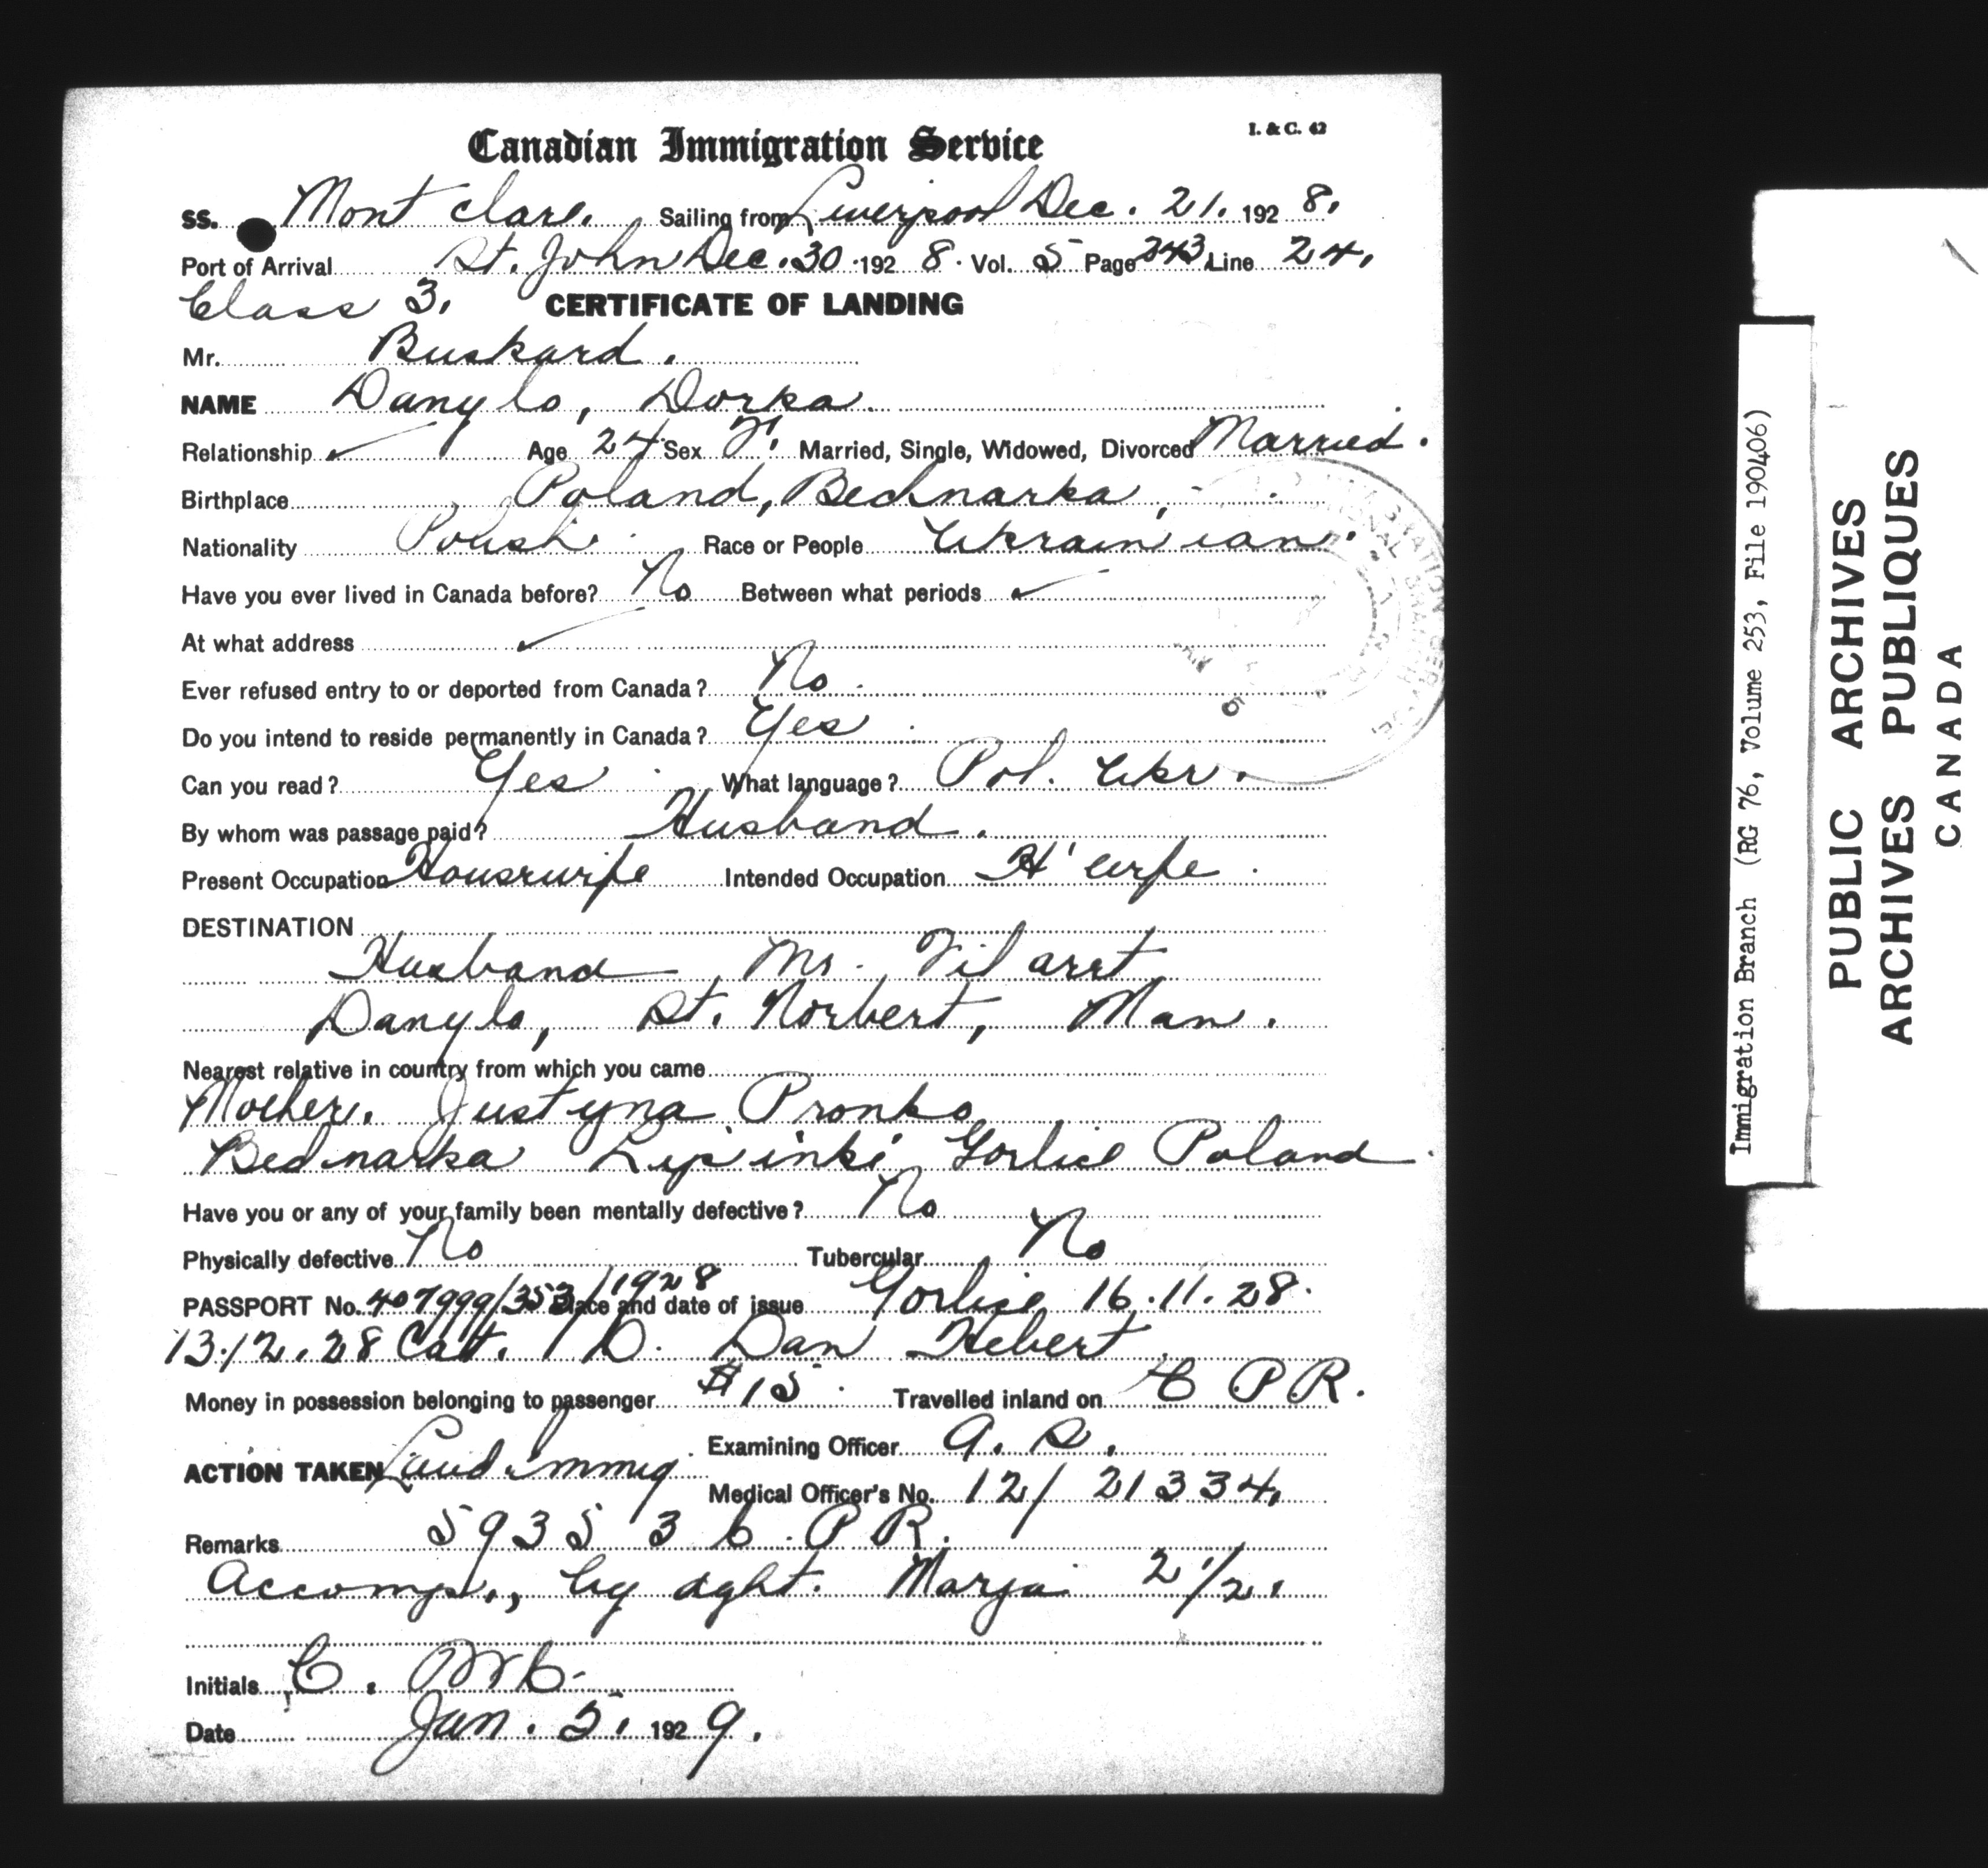 Canadian Immigration Service
I. & C. 42
SS. Mont clare. Sailing from Liverpool Dec. 21. 192 8.
Port of Arrival St. John Dec. 30 192 8. Vol. 5 Page 243 Line 24.
Class 3. CERTIFICATE OF LANDING
Mr. Buskard.
NAME Danylo, Dorka.
Relationship Age 24 Sex F. Married, Single, Widowed, Divorced Married.
Birthplace Poland, Bednarka,
Nationality Polish Race or People Ukrainian.
Have you ever lived in Canada before? No Between what periods
At what address
Ever refused entry to or deported from Canada? No.
Do you intend to reside permanently in Canada? Yes
Can you read? Yes What language? Pol. Ukr.
By whom was passage paid? Husband.
Present Occupation Housewife Intended Occupation H'wife.
DESTINATION
Husband Mr.
Danylo, St. Norbert, Man.
Nearest relative in country from which you came
Mother. Justyna Pronko
Bednarka Lipinki Gorlice Poland.
Have you or any of your family been mentally defective? No
Physically defective No Tubercular No
PASSPORT No. 407999/353/1928 Place and date of issue Gorlice 16.11.28.
13.12.28 Dan Hebert
Money in possession belonging to passenger $15. Travelled inland on C P R.
ACTION TAKEN Land Immig. Examining Officer
Medical Officer's No. 12/ 21334.
Remarks 5935 3 C. P R.
Accomp., by dght. Marja 2 1/2.
Initials C.
Date Jan. 5. 192 9.
Immigration Branch (RG 76, Volume 253, File 1904406)
PUBLIC ARCHIVES
ARCHIVES PUBLIQUES
CANADA